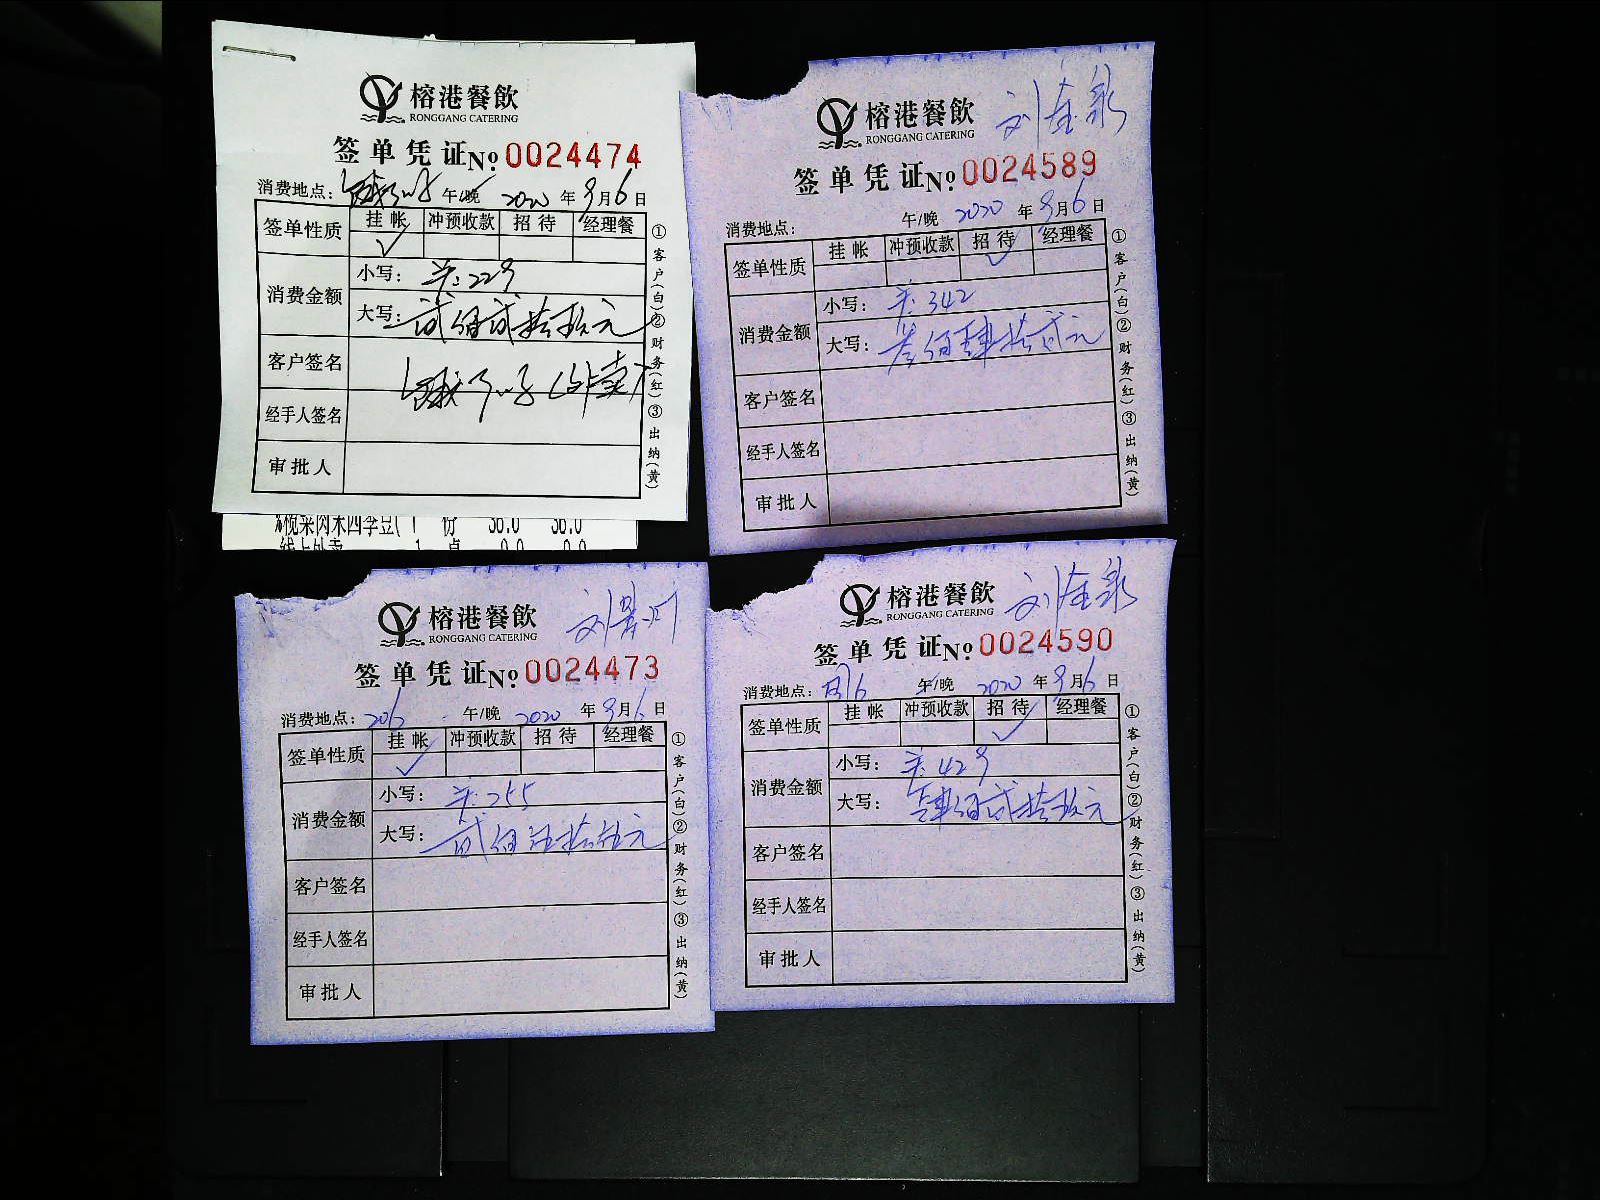 榕港餐飲
RONGGANG CATERING
签单凭证 No 0024474
消费地点: 饿了么 午/晚 2020年9月6日
签单性质 挂帐 冲预收款 招待 经理餐
✓
消费金额
小写: 羊:229
大写: 贰佰贰拾玖元
客户签名
饿了么(外卖)
经手人签名
审批人
①客户(白)②财务(红)③出纳(黄)
%榄菜肉末四季豆( 1 份 36.0 36.0
线上外卖 1 桌 0.0 0.0
榕港餐飲
RONGGANG CATERING
刘金泉
签单凭证 No 0024589
消费地点: 午/晚 2020年9月6日
签单性质 挂帐 冲预收款 招待 经理餐
✓
消费金额
小写: 羊:342
大写: 叁佰肆拾贰元
客户签名
经手人签名
审批人
①客户(白)②财务(红)③出纳(黄)
榕港餐飲
RONGGANG CATERING
签单凭证 No 0024473
消费地点: 206 午/晚 2020年9月6日
签单性质 挂帐 冲预收款 招待 经理餐
✓
消费金额
小写: 羊:255
大写: 贰佰伍拾伍元
客户签名
经手人签名
审批人
①客户(白)②财务(红)③出纳(黄)
榕港餐飲
RONGGANG CATERING
刘金泉
签单凭证 No 0024590
消费地点: 午/晚 2020年9月6日
签单性质 挂帐 冲预收款 招待 经理餐
✓
消费金额
小写: 羊:429
大写: 肆佰贰拾玖元
客户签名
经手人签名
审批人
①客户(白)②财务(红)③出纳(黄)